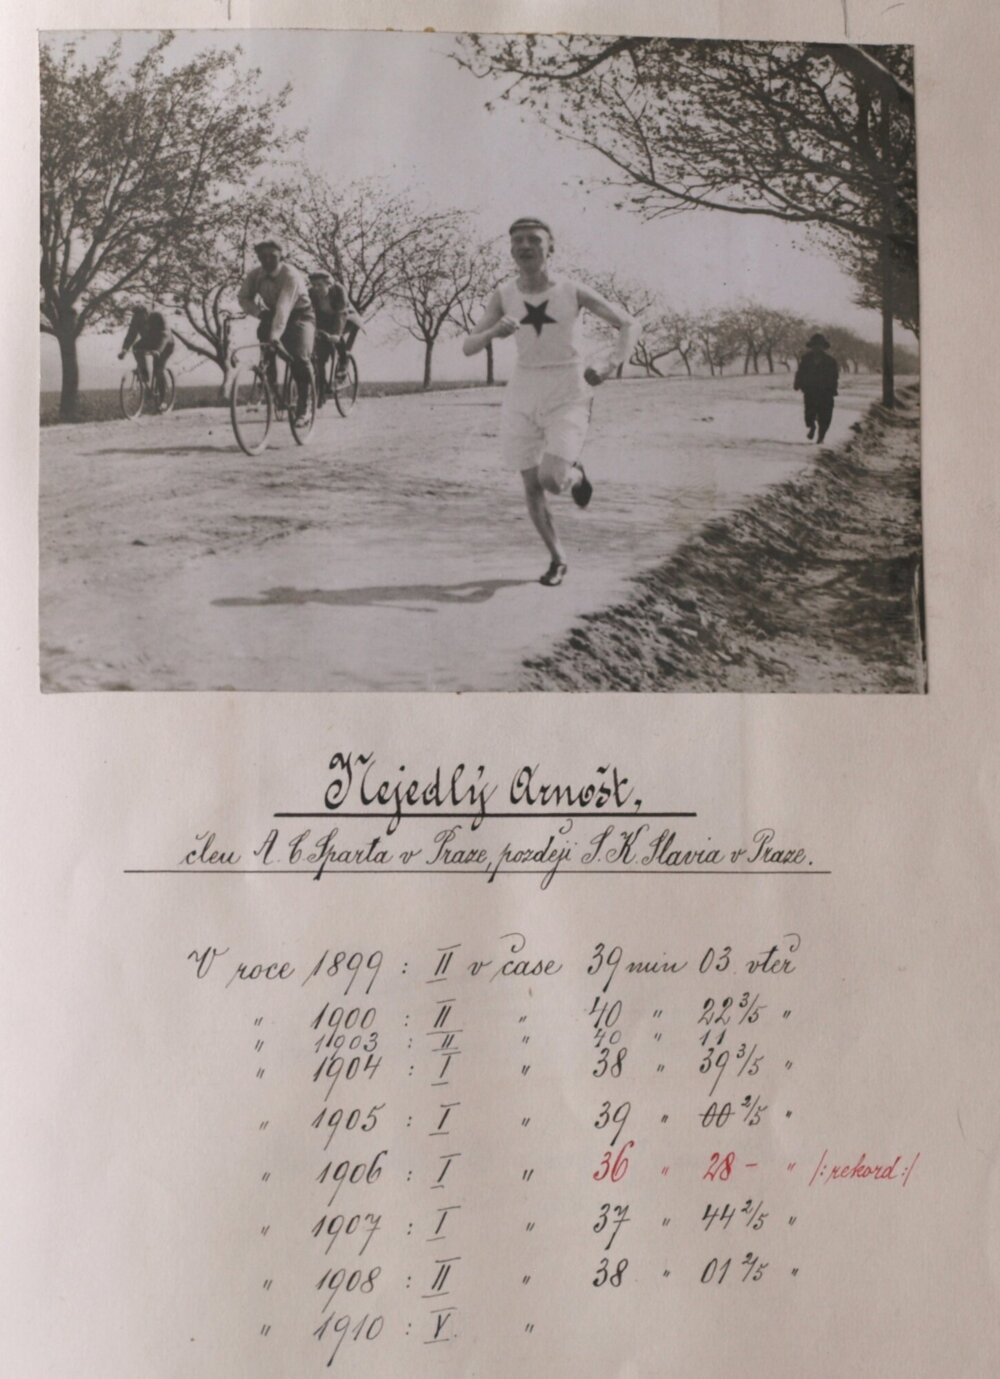 Nejedlý Arnošt,
člen A. C. Sparta v Praze, později S. K. Slavia v Praze.
V roce 1899 : II v čase 39 min 03 vteř
" 1900 : II " 40 " 22 3/5 "
" 1903 : II " 40 " 11
" 1904 : I " 38 " 39 3/5 "
" 1905 : I " 39 " 00 2/5 "
" 1906 : I " 36 " 28 - " /: rekord :/
" 1907 : I " 37 " 44 2/5 "
" 1908 : II " 38 " 01 2/5 "
" 1910 : V. "